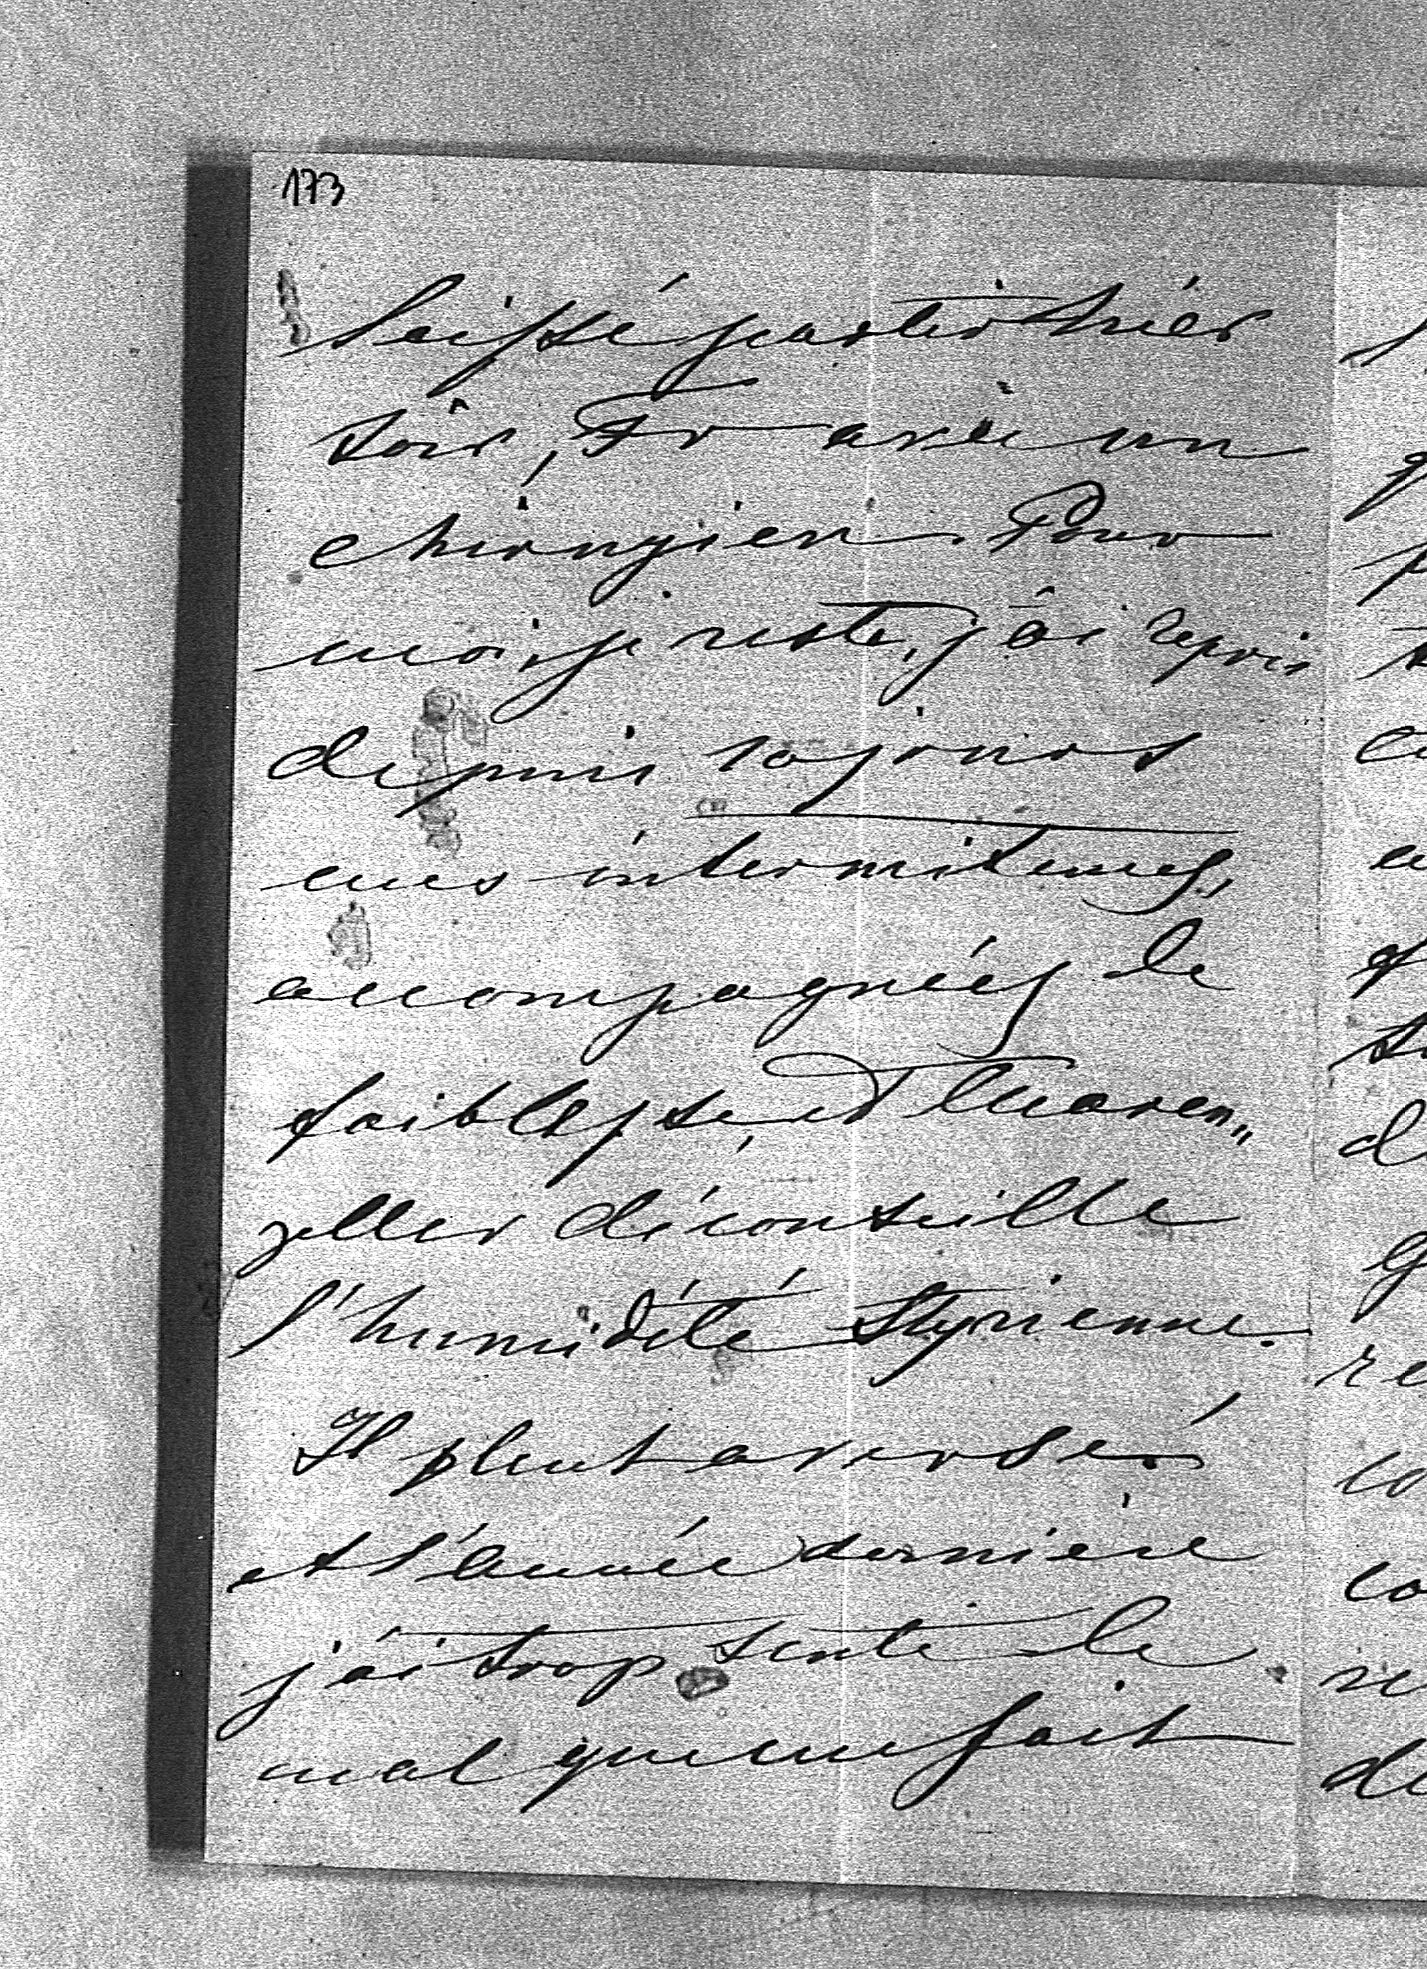 173
laissé partir hier
soir, Fr avec un
chirurgien. Pour
moi, je reste, j'ai repris
depuis 10 jours
mes intermitences,
accompagnées de
faiblesse, et Maren„
zeller déconseille
l'humidité Styrienne.
Il pleut averse
et l'année dernière
j'ai trop senti le
mal que me fait